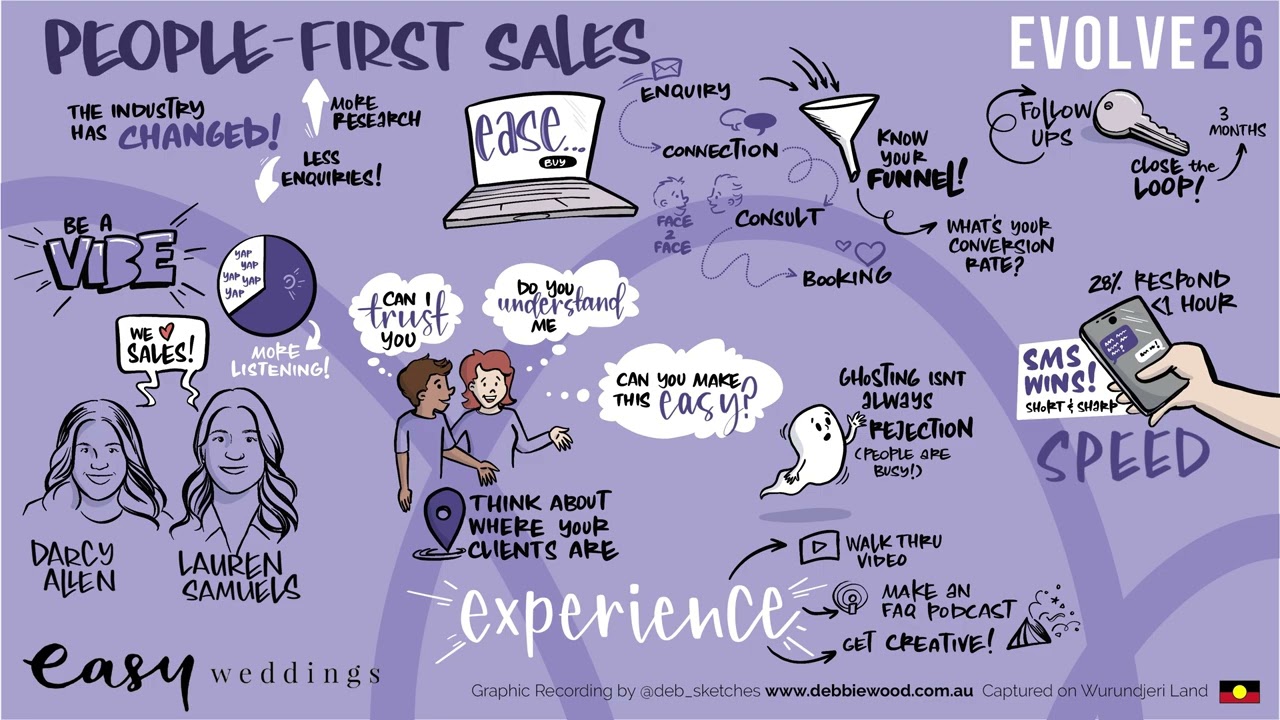 PEOPLE-FIRST SALES
EVOLVE26
THE INDUSTRY
HAS CHANGED!
MORE
RESEARCH
LESS
ENQUIRIES!
ease...
BUY
ENQUIRY
CONNECTION
FACE
2
FACE
CONSULT
BOOKING
KNOW
YOUR
FUNNEL!
WHAT'S YOUR
CONVERSION
RATE?
FOLLOW
UPS
CLOSE the
LOOP!
3
MONTHS
BE A
VIBE
YAP
YAP
YAP YAP
YAP
MORE
LISTENING!
WE
SALES!
DARCY
ALLEN
LAUREN
SAMUELS
CAN I
trust
YOU
DO YOU
understand
ME
CAN YOU MAKE
THIS easy?
THINK ABOUT
WHERE YOUR
CLIENTS ARE
GHOSTING ISNT
ALWAYS
REJECTION
(PEOPLE ARE
BUSY!)
28% RESPOND
<1 HOUR
SMS
WINS!
SHORT & SHARP
SPEED
experience
WALK THRU
VIDEO
MAKE AN
FAQ PODCAST
GET CREATIVE!
easy weddings
Graphic Recording by @deb_sketches www.debbiewood.com.au Captured on Wurundjeri Land